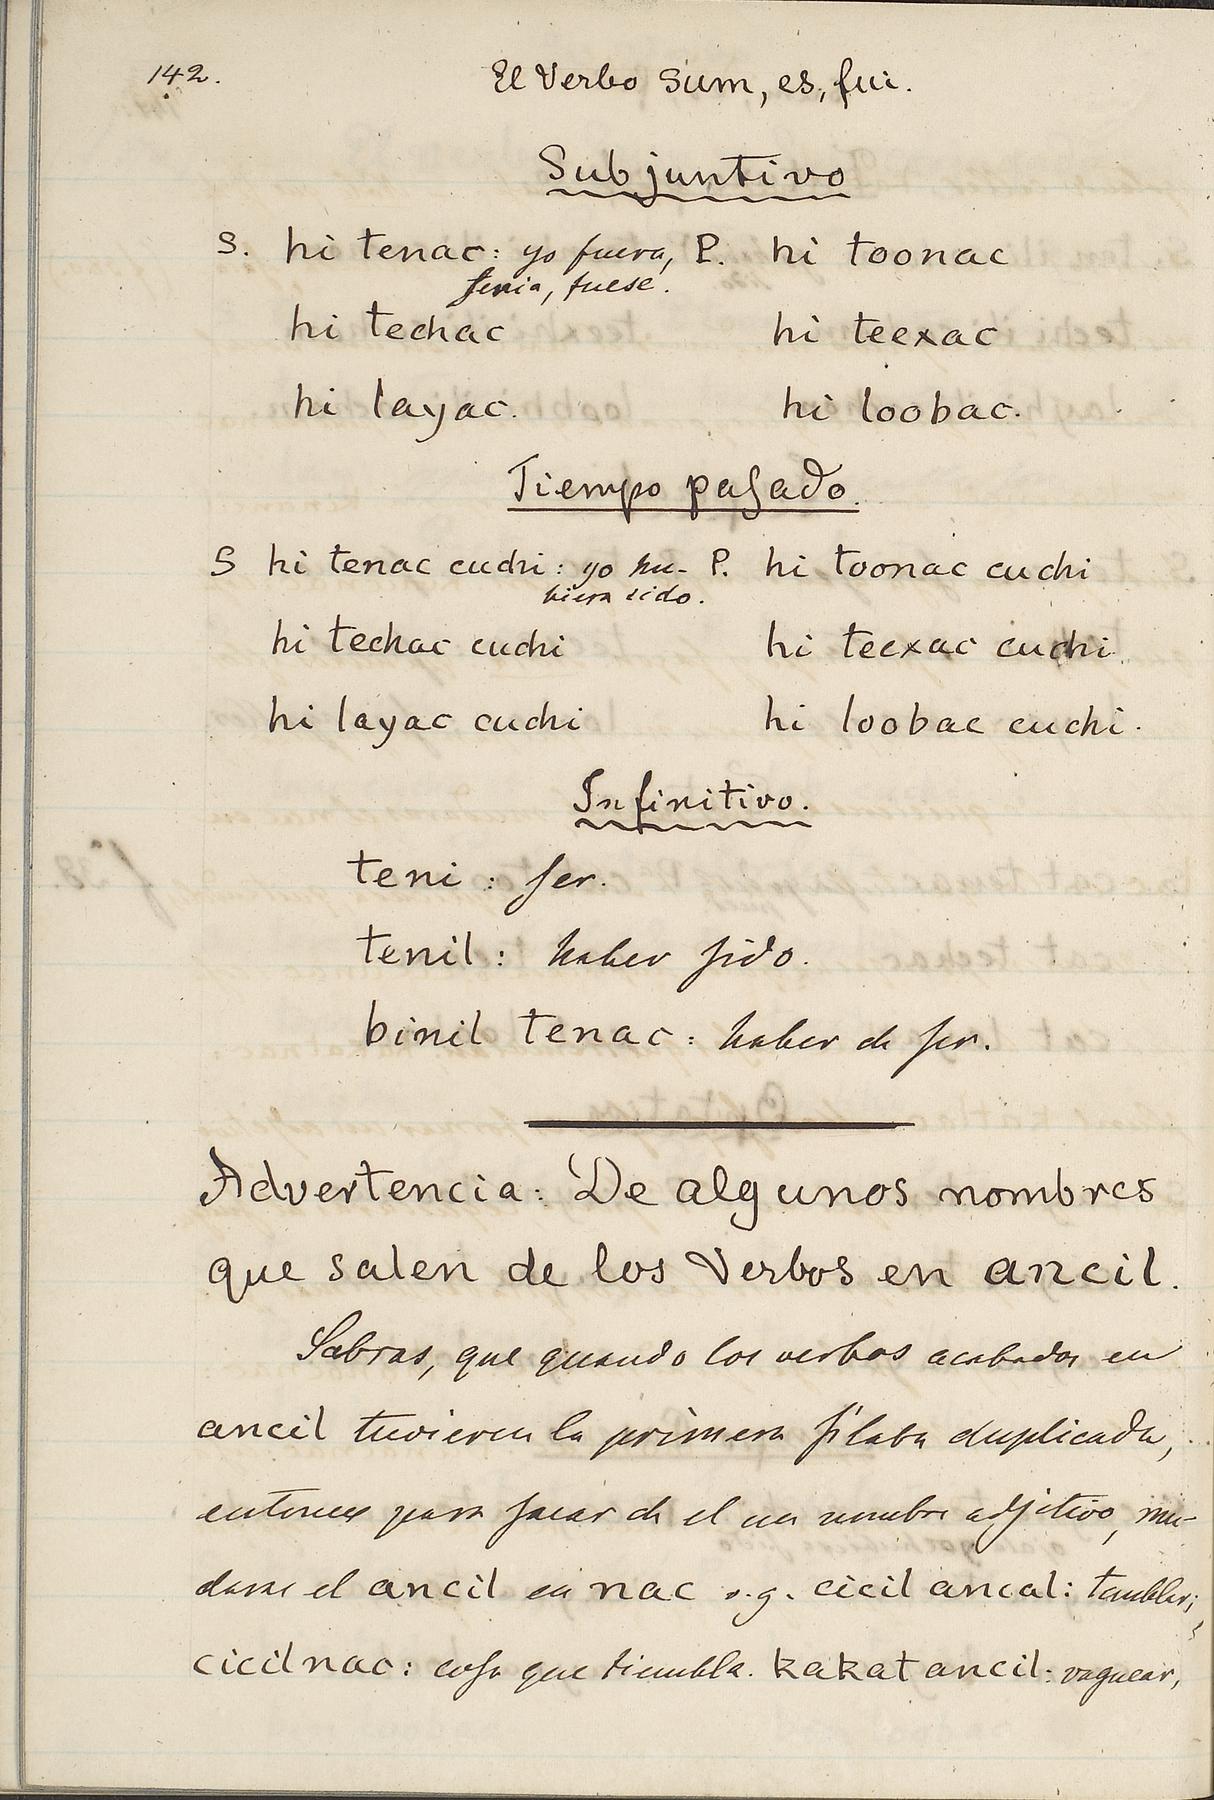 142.
El Verbo Sum, es, fui.
Subjuntivo
S. hi tenac: yo fuera, P. hi toonac
seria, fuese.
hi techac hi teexac
hi layac. hi loobac.
Tiempo pasado.
S hi tenac cuchi: yo hu- P. hi toonac cuchi
biera sido.
hi techac cuchi hi teexac cuchi.
hi layac cuchi hi loobac cuchi.
Infinitivo.
teni: ser.
tenil: haber sido.
binil tenac: haber de ser.
Advertencia: De algunos nombres
que salen de los Verbos en ancil.
Sabras, que quando los verbos acabados en
ancil tuvieren la primera silaba duplicada,
entonces para sacar de el un nombre adjetivo, mu-
darse el ancil en nac v.g. cicil ancal: temblar;
cicilnac: cosa que tiembla. kakatancil: vaguear,